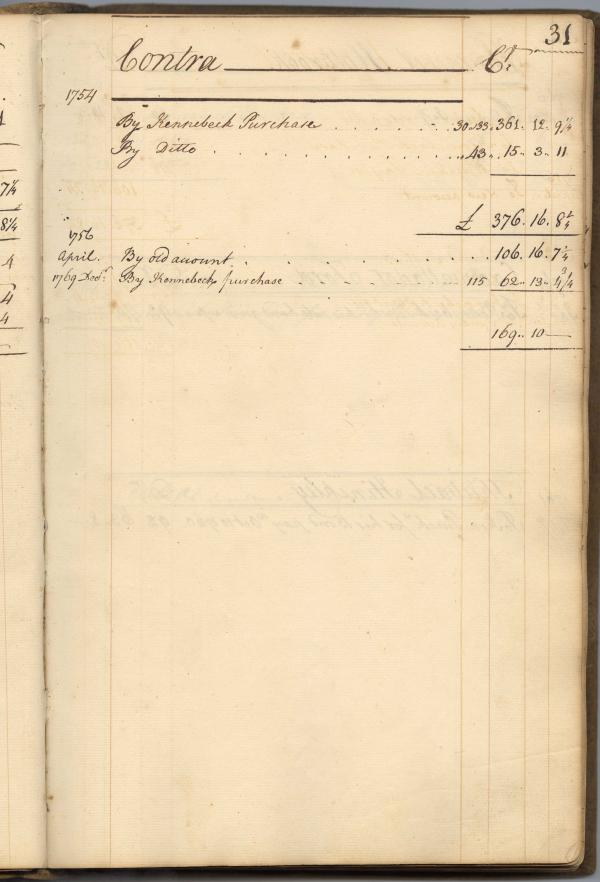 31
Contra Cr
1754
By Kennebeck Purchase . . . . . . 30..33.. 361.. 12.. 9 1/4
By Ditto . . . . . . . . . . . . . . . ..43.. ..15.. 3.. 11
£ 376. 16. 8 1/4
1756
April. By old account . . . . . . . . . . 106. 16. 7 1/4
1769 Decr. By Kennebeck purchase . . . . . 115 62.. 13.. 4 3/4
169.. 10 —
7 1/4
8 1/4
4
4
4